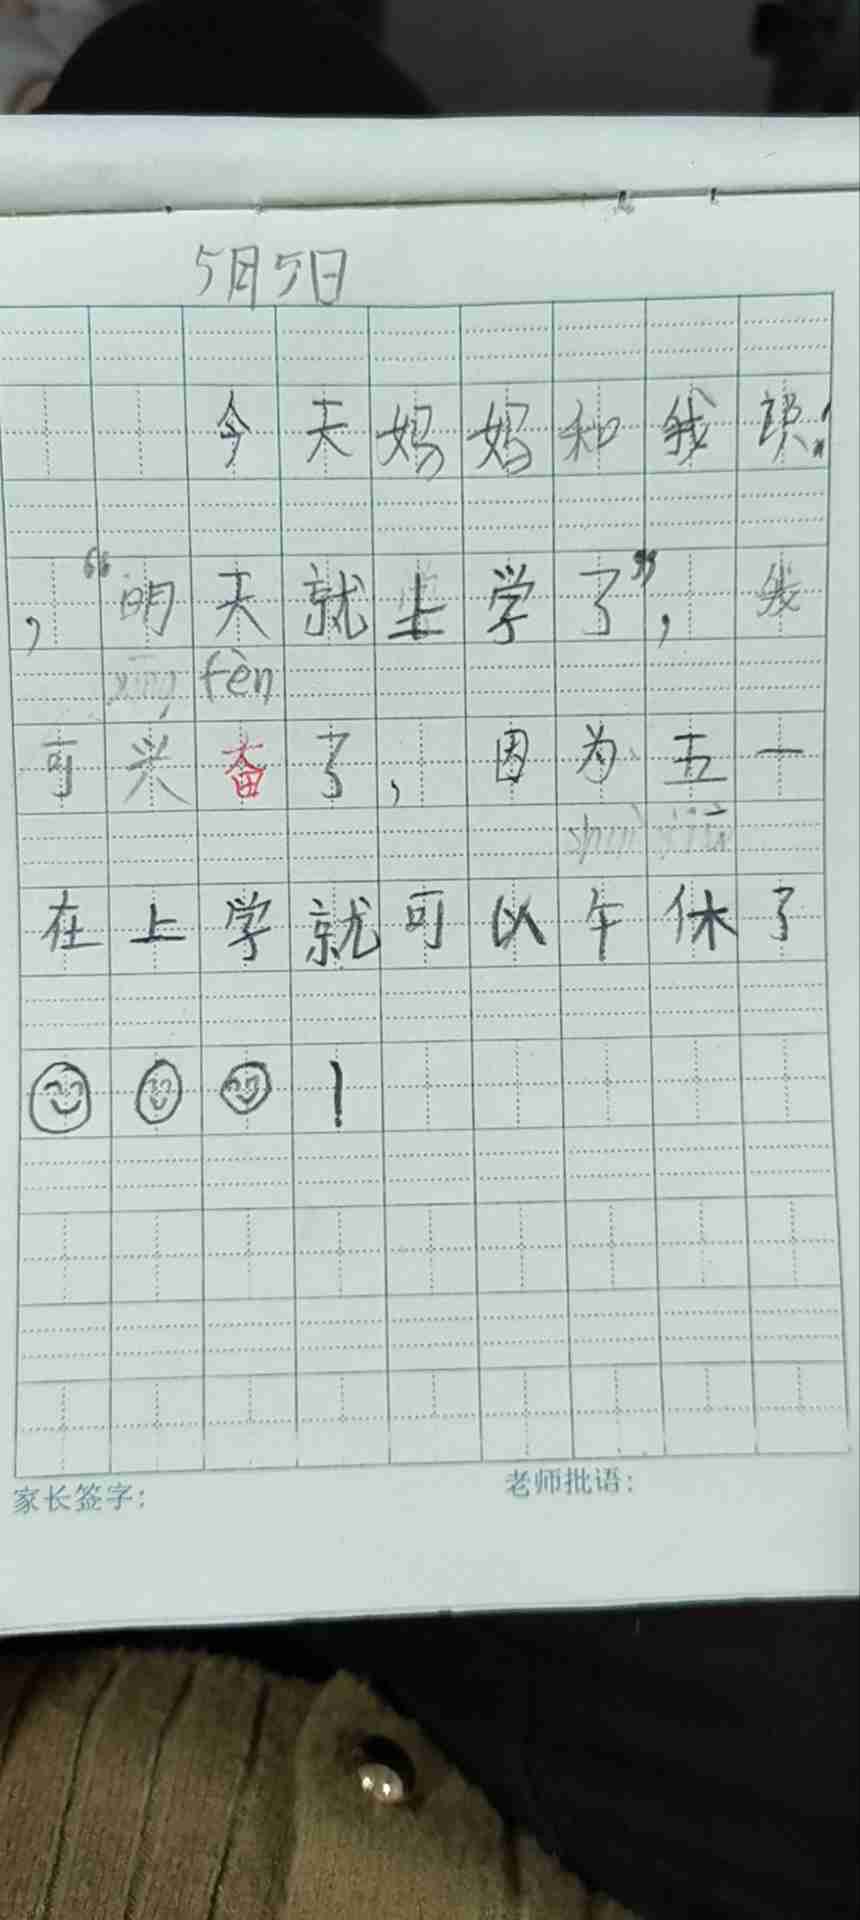 5月5日
今天妈妈和我说：
，“明天就上学了”，我
fèn
可兴奋了，因为五一
在上学就可以午休了
！
家长签字：
老师批语：